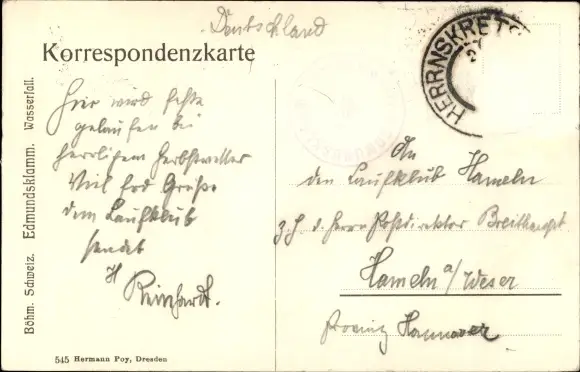 Deutschland
Korrespondenzkarte
HERRNSKRETS
Böhm. Schweiz. Edmundsklamm. Wasserfall.
Hier wird feste
gelaufen bei
herrlichem Herbstwetter
Viel Grüße
dem Laufklub
sendet
H Reinhardt.
An
den Laufklub Hameln
z. H. d. Herrn Postdirektor Breitknecht
Hameln a/Weser
Provinz Hannover
545 Hermann Poy, Dresden